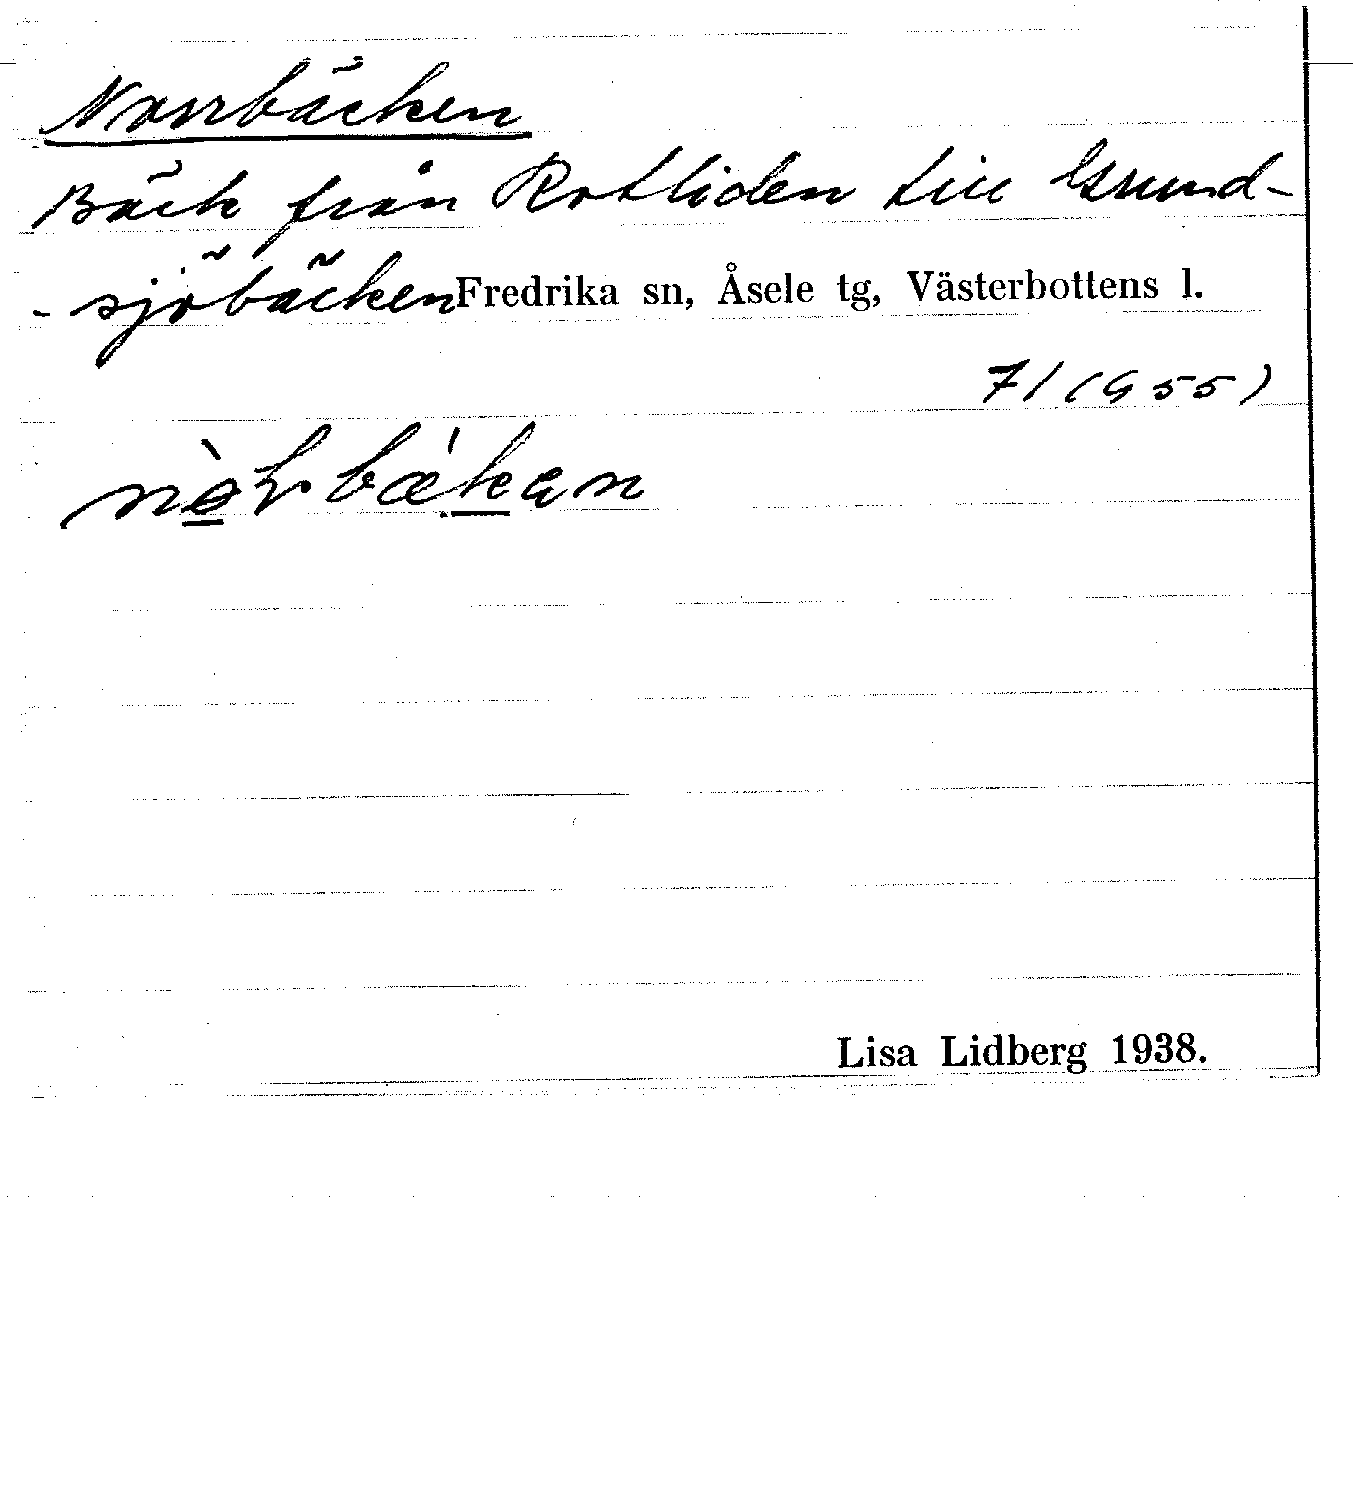 Norrbäcken
Bäck från Rotliden till Grund-
-sjöbäcken Fredrika sn, Åsele tg, Västerbottens l.
71 (G 55)
Lisa Lidberg 1938.